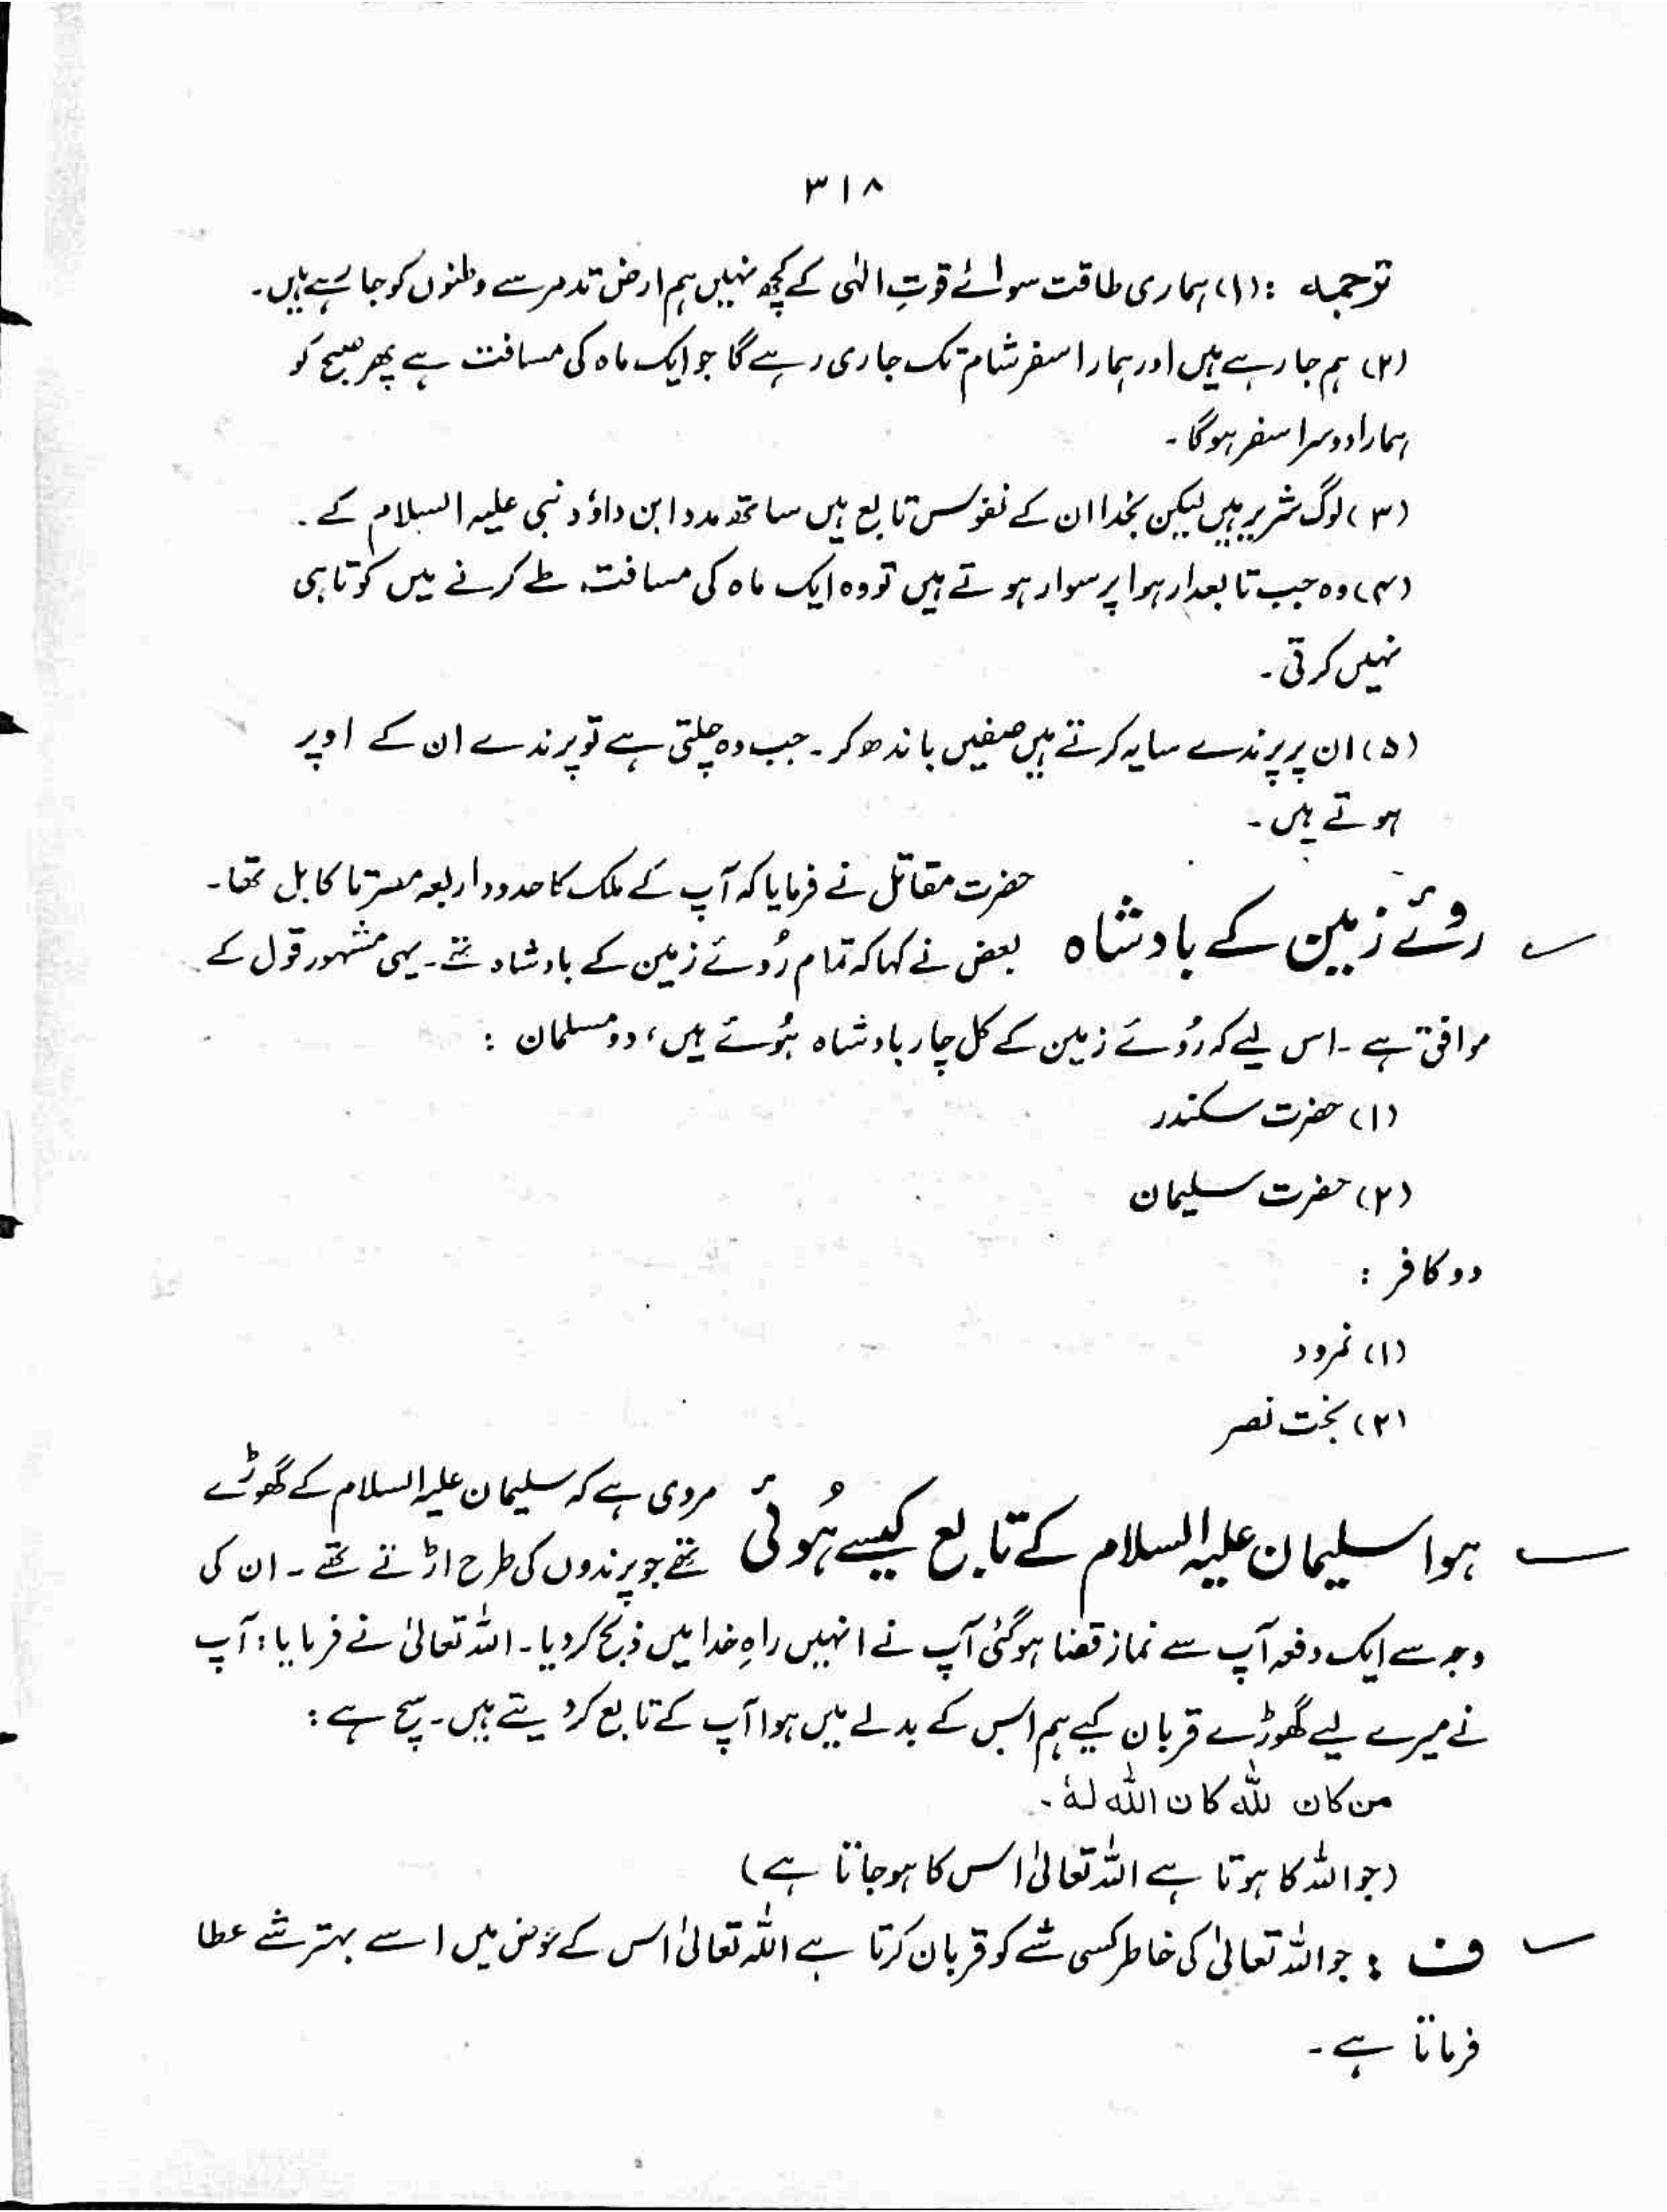 ۳۱۸
ترجمہ : (۱) ہماری طاقت سوائے قوتِ الٰہی کے کچھ نہیں ہم ارض تدمر سے وطنوں کو جا رہے ہیں۔
(۲) ہم جا رہے ہیں اور ہمارا سفر شام تک جاری رہے گا جو ایک ماہ کی مسافت ہے پھر صبح کو
ہمارا دوسرا سفر ہوگا۔
(۳) لوگ شریر ہیں لیکن بخدا ان کے نفوس تابع ہیں ساتھ مدد ابن داؤد نبی علیہ السلام کے۔
(۴) وہ جب تابعدار ہوا پر سوار ہوتے ہیں تو وہ ایک ماہ کی مسافت طے کرنے میں کوتاہی
نہیں کرتی۔
(۵) ان پر پرندے سایہ کرتے ہیں صفیں باندھ کر۔ جب وہ چلتی ہے تو پرندے ان کے اوپر
ہوتے ہیں۔
روئے زمین کے بادشاہ
حضرت مقاتل نے فرمایا کہ آپ کے ملک کا حدود اربعہ مصر تا کابل تھا۔
بعض نے کہا کہ تمام رُوئے زمین کے بادشاہ تھے۔ یہی مشہور قول کے
موافق ہے۔ اس لیے کہ رُوئے زمین کے کل چار بادشاہ ہُوئے ہیں، دو مسلمان :
(۱) حضرت سکندر
(۲) حضرت سلیمان
دو کافر :
(۱) نمرود
(۲) بخت نصر
ہوا سلیمان علیہ السلام کے تابع کیسے ہُوئی
مروی ہے کہ سلیمان علیہ السلام کے گھوڑے
تھے جو پرندوں کی طرح اڑتے تھے۔ ان کی
وجہ سے ایک دفعہ آپ سے نماز قضا ہوگئی آپ نے انہیں راہِ خدا میں ذبح کردیا۔ اللہ تعالیٰ نے فرمایا : آپ
نے میرے لیے گھوڑے قربان کیے ہم اس کے بدلے میں ہوا آپ کے تابع کردیتے ہیں۔ سچ ہے :
من کان للہ کان اللہ لہٗ۔
(جو اللہ کا ہوتا ہے اللہ تعالیٰ اس کا ہوجاتا ہے)
ف : جو اللہ تعالیٰ کی خاطر کسی شے کو قربان کرتا ہے اللہ تعالیٰ اس کے عوض میں اسے بہتر شے عطا
فرماتا ہے۔